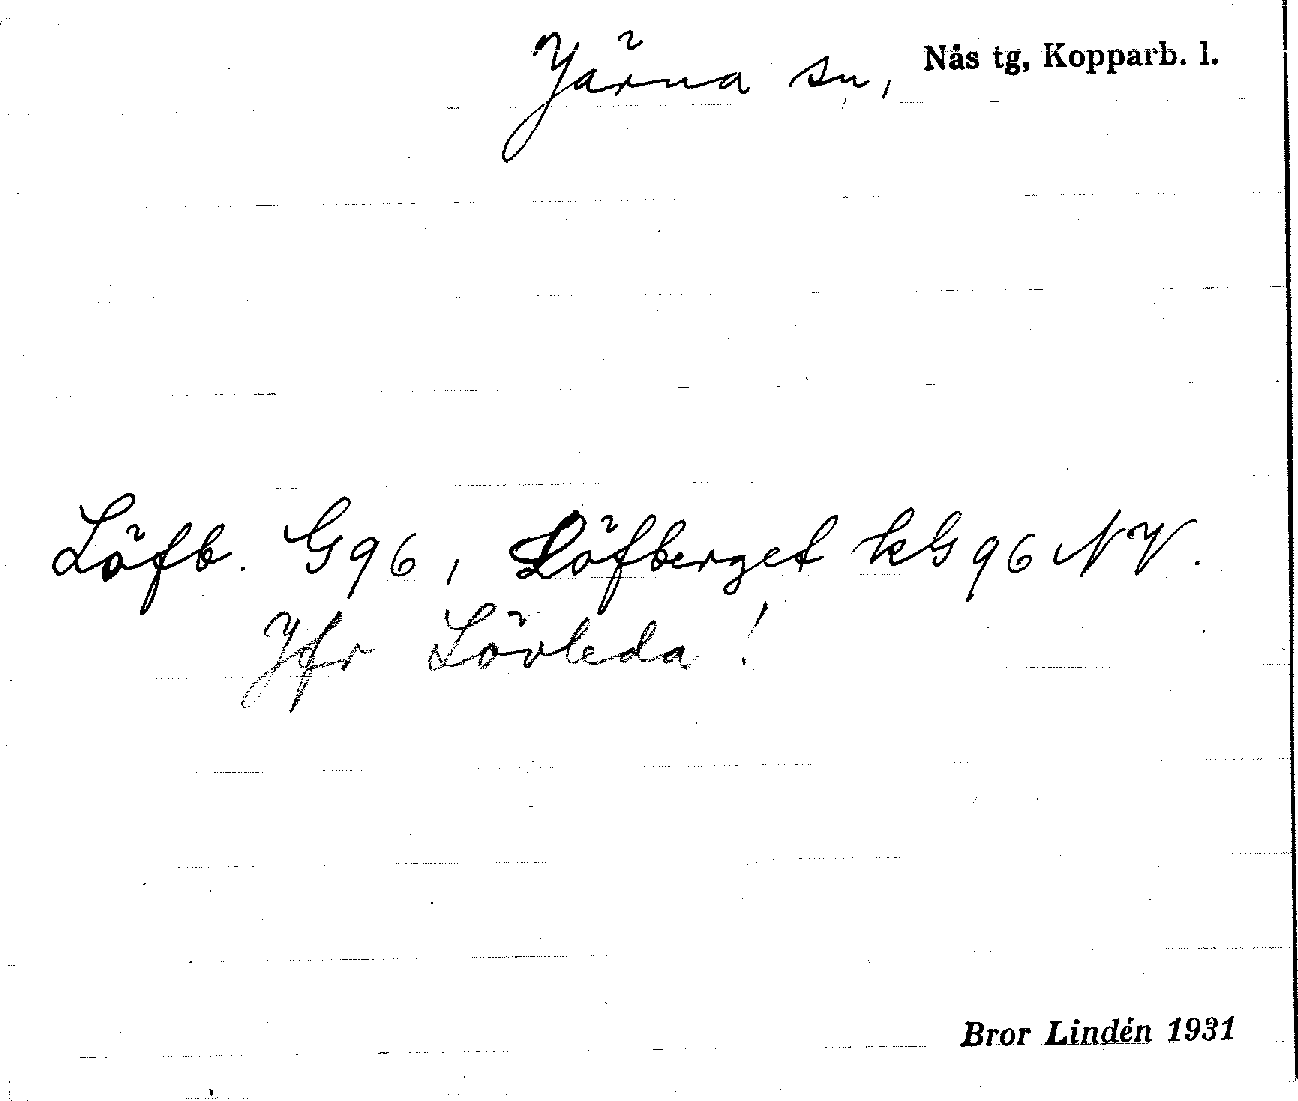 Järna sn, Nås tg, Kopparb. l.
Löfb. G96, Löfberget kG96 NV.
Jfr Lövleda!
Bror Lindén 1931